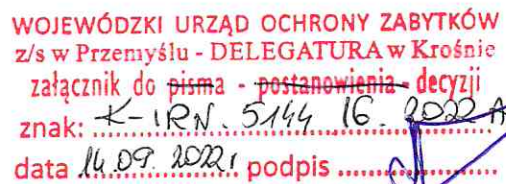 WOJEWÓDZKI URZĄD OCHRONY ZABYTKÓW
z/s w Przemyślu - DELEGATURA w Krośnie
załącznik do pisma - postanowienia - decyzji
znak: K-IRN. 5144 16. 2022 A
data 14.09.2022 r podpis